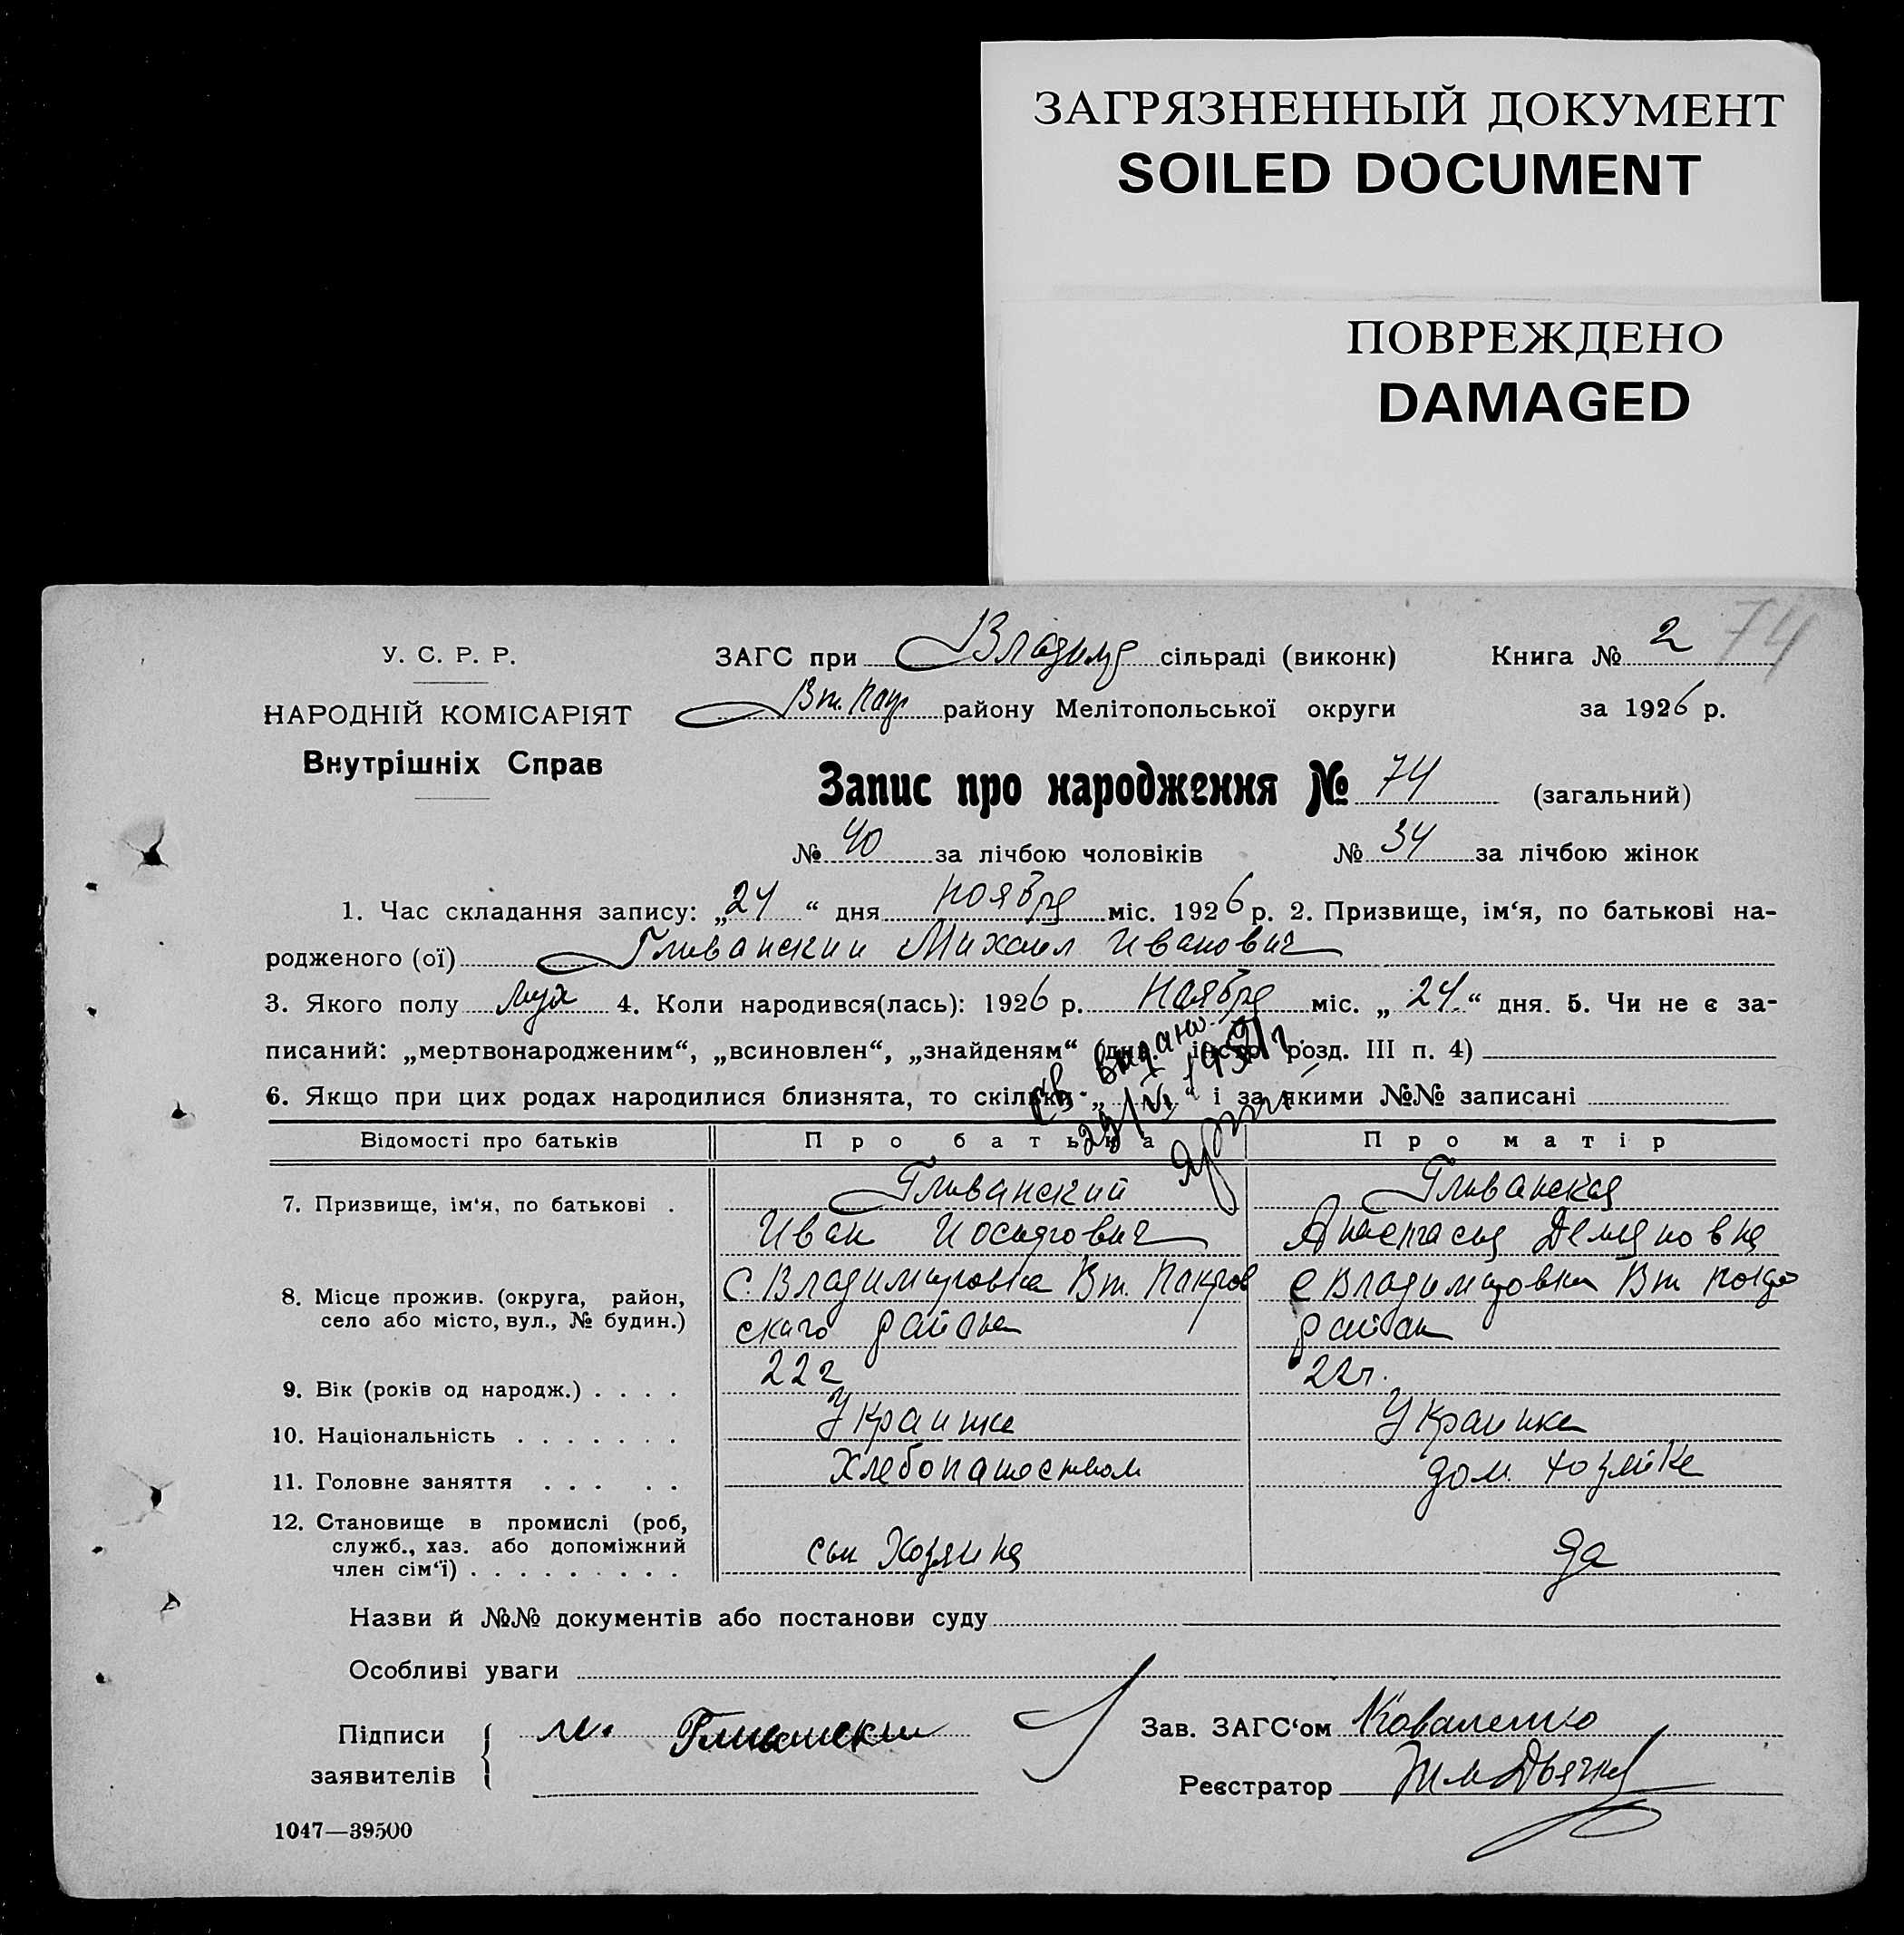 ЗАГРЯЗНЕННЫЙ ДОКУМЕНТ
SOILED DOCUMENT
ПОВРЕЖДЕНО
DAMAGED
74
У. С. Р. Р.
ЗАГС при Владимр сільраді (виконк) Книга № 2
НАРОДНІЙ КОМІСАРІЯТ
Вт. Покр району Мелітопольської округи за 1926 р.
Внутрішніх Справ
Запис про народження № 74 (загальний)
№ 40 за лічбою чоловіків № 34 за лічбою жінок
1. Час складання запису: „24“ дня ноября міс. 1926 р. 2. Призвище, ім‘я, по батькові на-
родженого (ої) Гливанский Михаил Иванович
3. Якого полу муж 4. Коли народився(лась): 1926 р. Ноября міс. „24“ дня. 5. Чи не є за-
писаний: „мертвонародженим“, „всиновлен“, „знайденям“ розд. III п. 4)
6. Якщо при цих родах народилися близнята, то скільки „ “ і за якими №№ записані
Св. выдано
Відомості про батьків Про батька Про матір
7. Призвище, ім‘я, по батькові . Гливанский Гливанская
Иван Иосифович Анастасия Демяновна
8. Місце прожив. (округа, район, село або місто, вул., № будин.) С. Владимировка Вт. Покров С Владимировка Вт
ского района район
9. Вік (років од народж.) . . . . 22 г 22 г.
10. Національність . . . . . . . Украинец Украинка
11. Головне заняття . . . . . Хлебопашеством дом. хозяйка
12. Становище в промислі (роб, служб., хаз. або допоміжний член сім‘ї) . . . . . . . . . сын Хозяина да
Назви й №№ документів або постанови суду
Особливі уваги
Підписи заявителів Гливански
Зав. ЗАГС‘ом Коваленко
Реєстратор
1047—39500